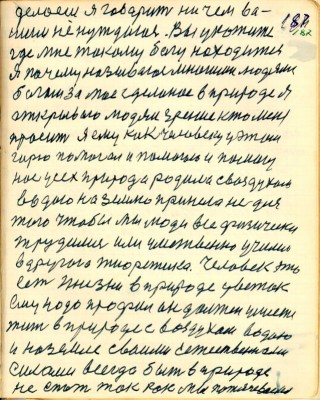 делаеш я говарит ни чем ва-
шим не нуждаюс. Вы укажите
где мне такому богу находится
Я почему называюс многими людями
богам за мае сделаное в природе я
открываю людям зрение кто меня
просит я ему как человеку у этом
горю помогал и помогаю и помогу
нас усех природа родила с воздухам
водаю на землю приняла не для
того чтобы мы люди все физически
трудимся или умственно учимся
в другого теоретика. Человек эта
есть жизни в природе цветок
ему надо профил он должен уметь
жит в природе с воздухам водою
и на земле своими естествеными
силами всегда быт в природе
не спат так как мы